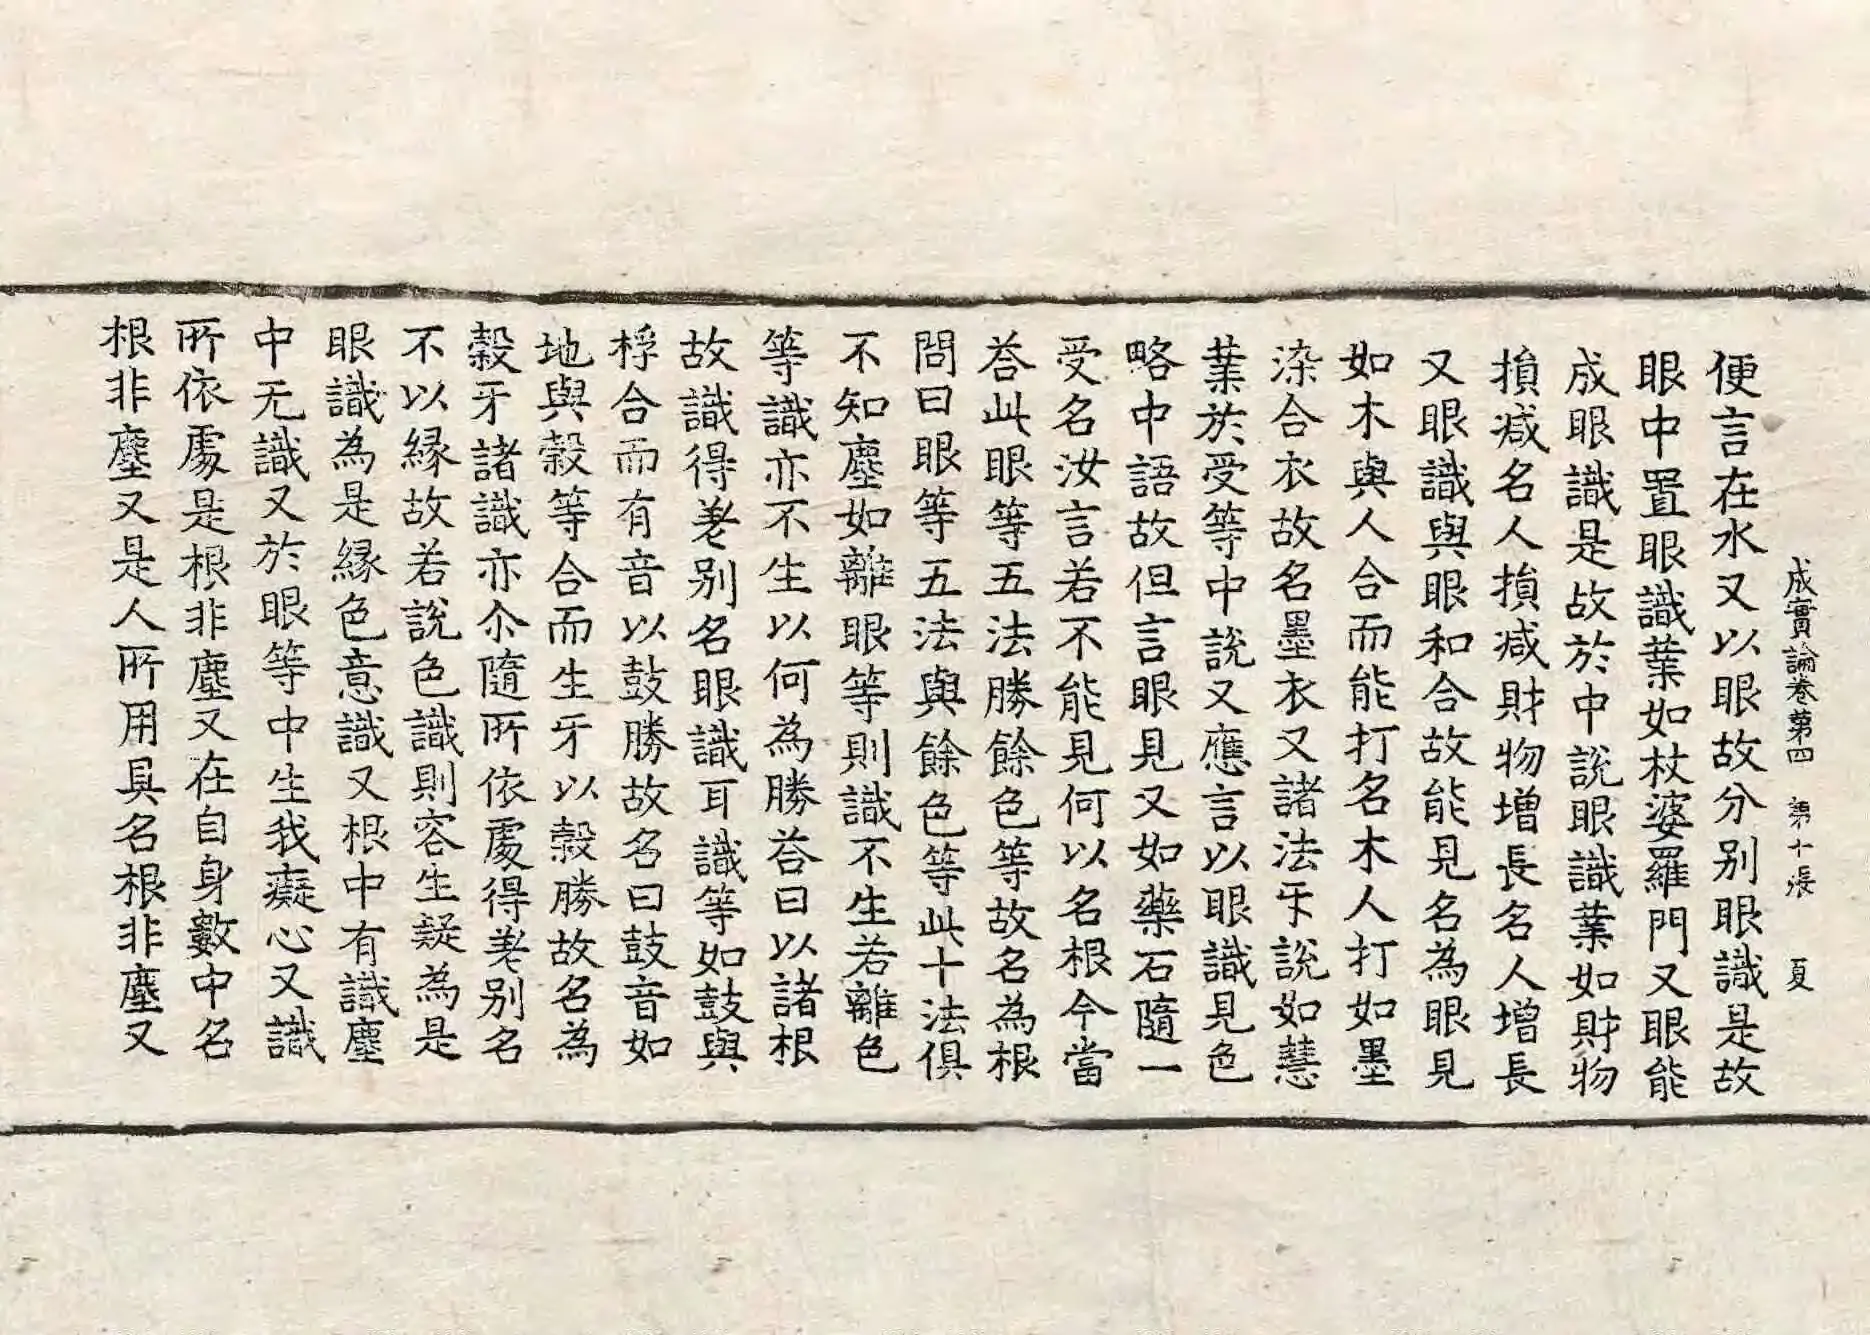 成實論卷第四　第十張　夏
便言在水又以眼故分别眼識是故
眼中置眼識業如杖婆羅門又眼能
成眼識是故於中說眼識業如財物
損减名人損减財物增長名人增長
又眼識與眼和合故能見名為眼見
如木與人合而能打名木人打如墨
染合衣故名墨衣又諸法㸦說如慧
業於受等中說又應言以眼識見色
略中語故但言眼見又如藥石隨一
受名汝言若不能見何以名根今當
荅此眼等五法勝餘色等故名為根
問曰眼等五法與餘色等此十法俱
不知塵如離眼等則識不生若離色
等識亦不生以何為勝荅曰以諸根
故識得差别名眼識耳識等如鼓與
桴合而有音以鼓勝故名曰鼓音如
地與穀等合而生牙以穀勝故名為
穀牙諸識亦尒隨所依處得差别名
不以緣故若說色識則容生疑為是
眼識為是緣色意識又根中有識塵
中无識又於眼等中生我癡心又識
所依處是根非塵又在自身數中名
根非塵又是人所用具名根非塵又